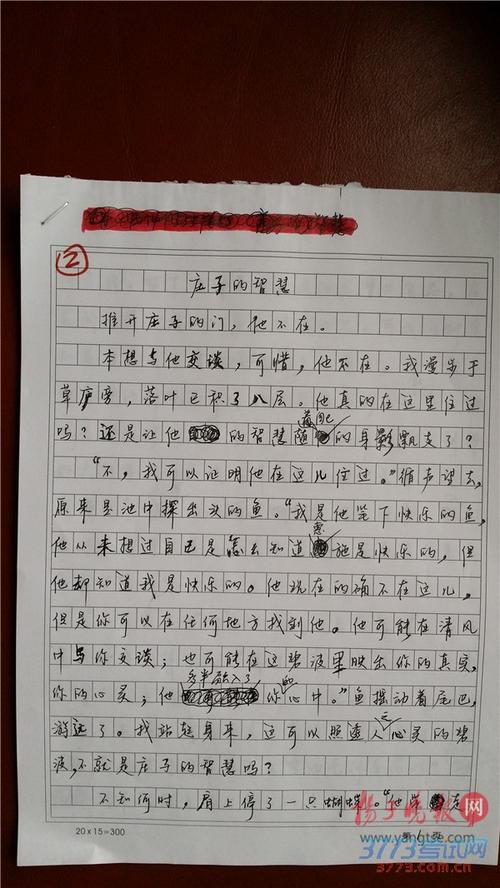 ②
庄子的智慧
推开庄子的门,他不在。
本想与他交谈,可惜,他不在。我漫步于
草庐旁,落叶已积了八层。他真的在这里住过
自己
吗?还是让他的智慧随的身影飘走了?
“不,我可以证明他在这儿住过。”循声望去,
原来是池中探出头的鱼。“我是他笔下快乐的鱼,
惠
他从未想过自己是怎么知道施是快乐的,但
他却知道我是快乐的。他现在的确不在这儿。
但是你可以在任何地方找到他。他可能在清风
中与你交谈;也可能在这碧波里映出你的真实,
多半融入了 的
你的心灵;他你心中。”鱼摆动着尾巴,
游远了。我站起身来,这可以照透人心灵的碧
之
波,不就是庄子的智慧吗?
不知何时,肩上停了一只蝴蝶。“他是
20×15=300
扬子晚报网
www.yangtse.com
3773考试网
3773.com.cn